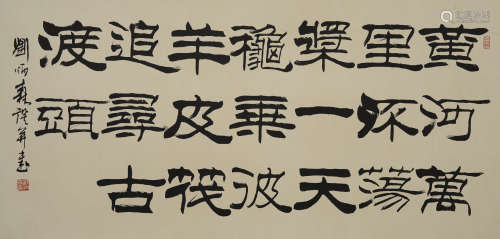 黄河萬
里蕩
槳一天
龝乘彼
羊皮筏
追尋古
渡頭
劉炳森撰并書